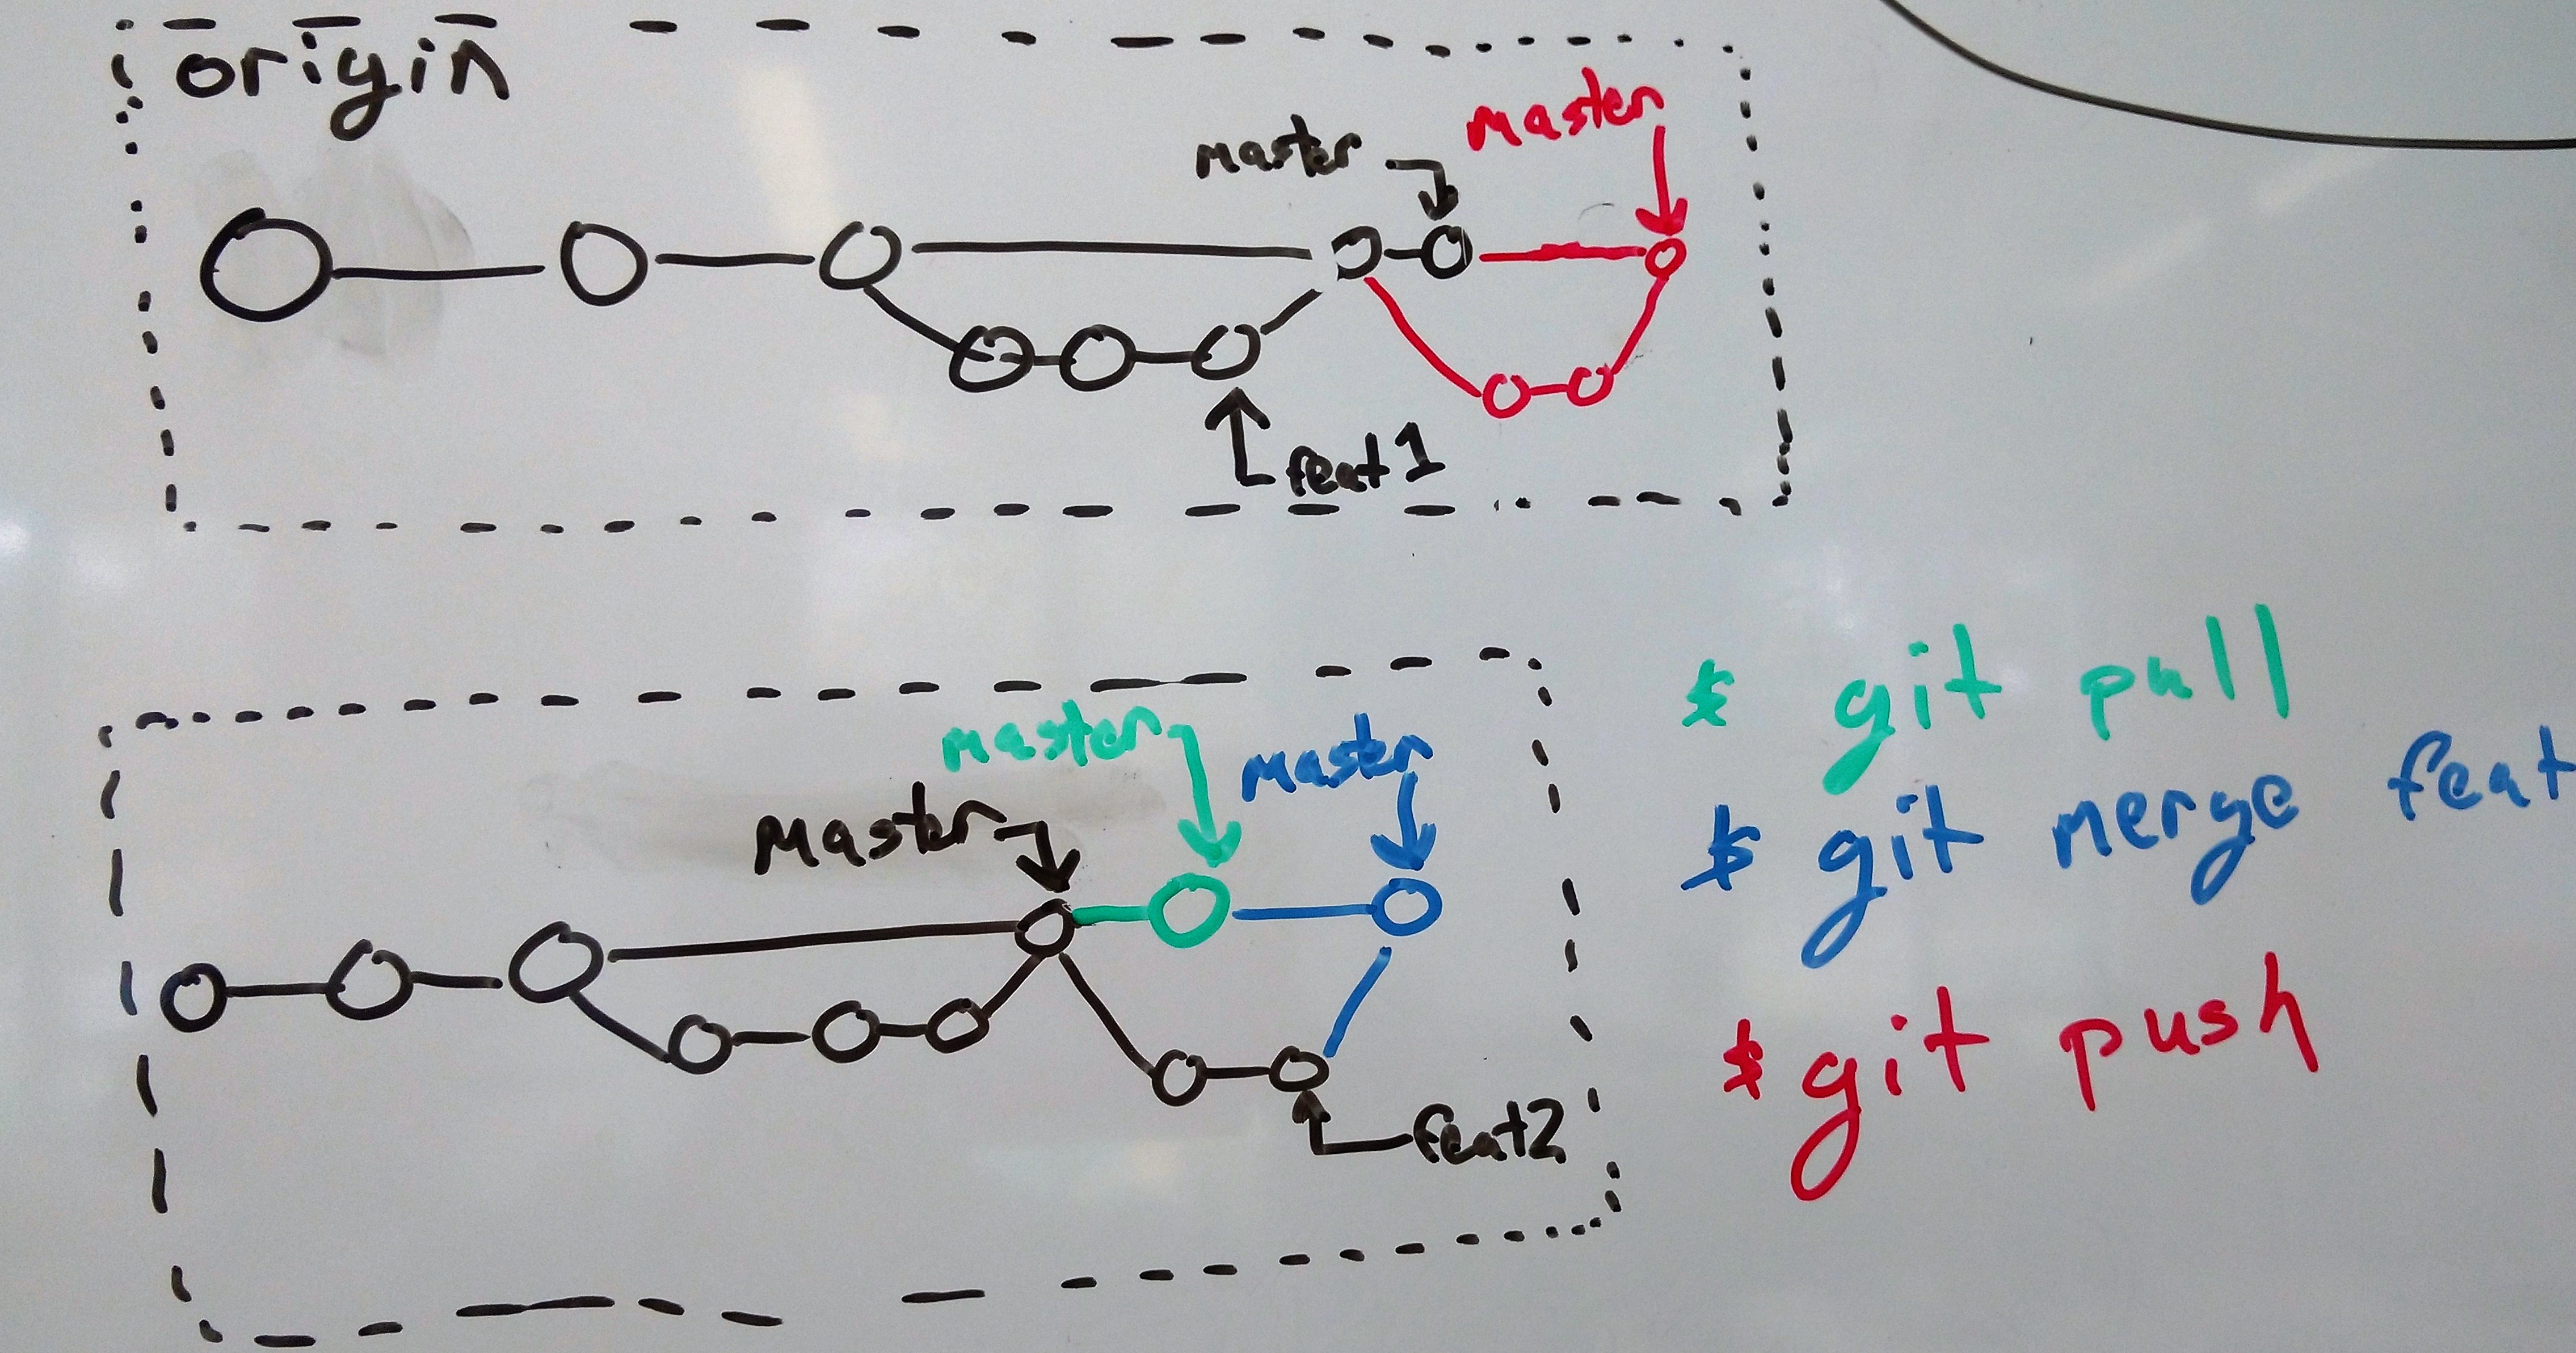 origin
master
master
feat1
master
master
master
feat2
$ git pull
$ git merge feat
$ git push